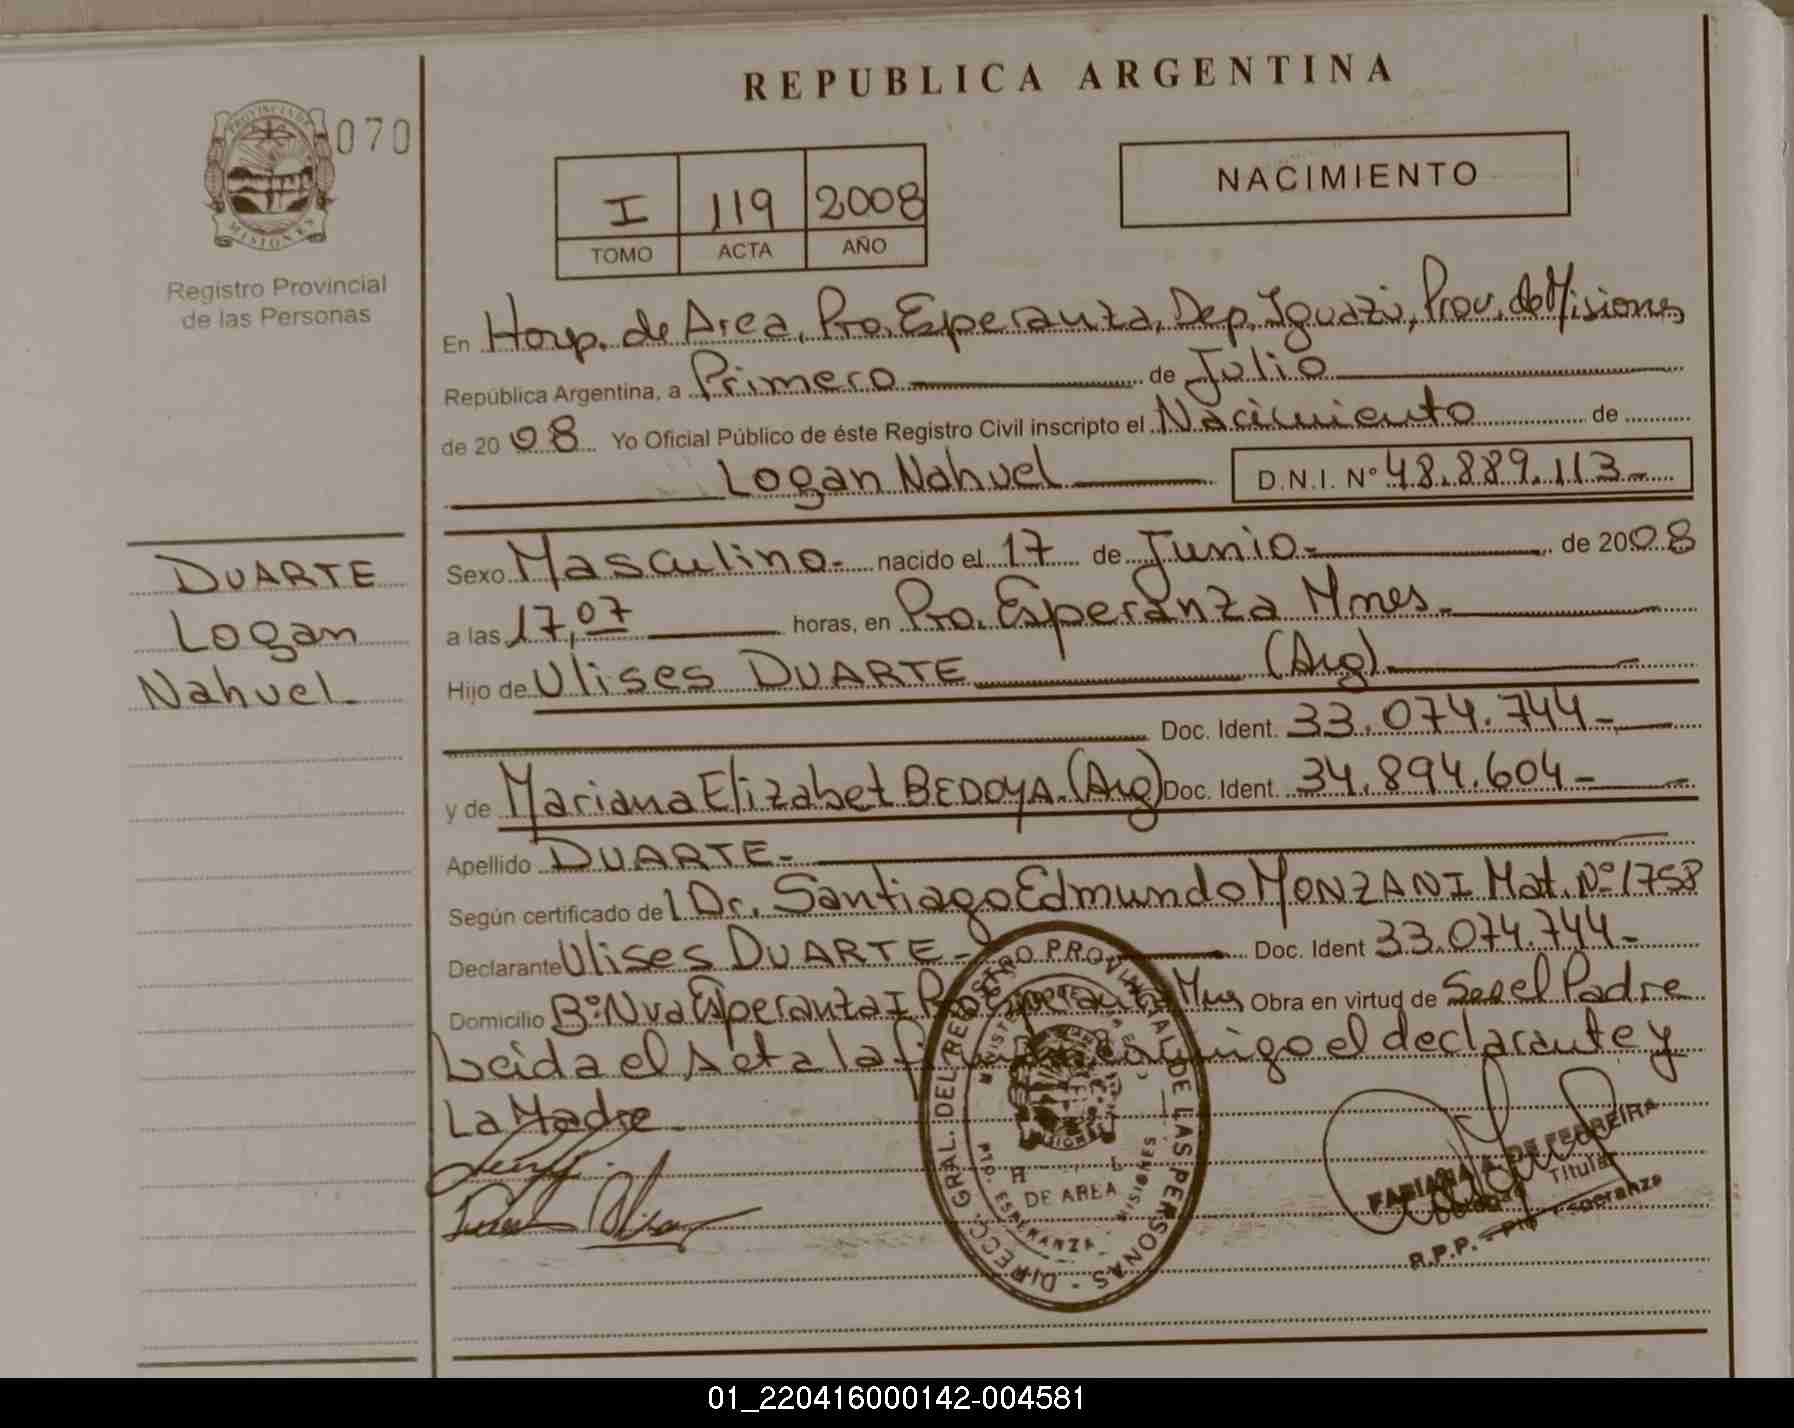 REPUBLICA ARGENTINA
PROVINCIA DE MISIONES
070
Registro Provincial
de las Personas
I 119 2008
TOMO ACTA AÑO
NACIMIENTO
En Hosp. de Area, Pto. Esperanza, Dep. Iguazú, Prov. de Misiones
República Argentina, a Primero de Julio
de 2008 Yo Oficial Público de éste Registro Civil inscripto el Nacimiento de
Logan Nahuel D.N.I. Nº 48.889.113-
DUARTE
Logan
Nahuel-
Sexo Masculino- nacido el 17 de Junio- de 2008
a las 17,07 horas, en Pto. Esperanza Mnes-
Hijo de Ulises DUARTE (Arg)-
Doc. Ident. 33.074.744-
y de Mariana Elizabet BEDOYA. (Arg) Doc. Ident. 34.894.604-
Apellido DUARTE-
Según certificado del Dr. Santiago Edmundo MONZANI Mat. Nº 1758
Declarante Ulises DUARTE- Doc. Ident 33.074.744-
Domicilio Bº: Nva Esperanza I Pto Esperanza Mns Obra en virtud de Ser el Padre
Leida el Acta la firman conmigo el declarante y
La Madre-
DIRECC. GRAL. DEL REGISTRO PROVINCIAL DE LAS PERSONAS -
DE AREA
PTO. ESPERANZA - MISIONES
FABIANA A. DE FERREIRA
Titular
R.P.P. - Pto Esperanza
01_220416000142-004581